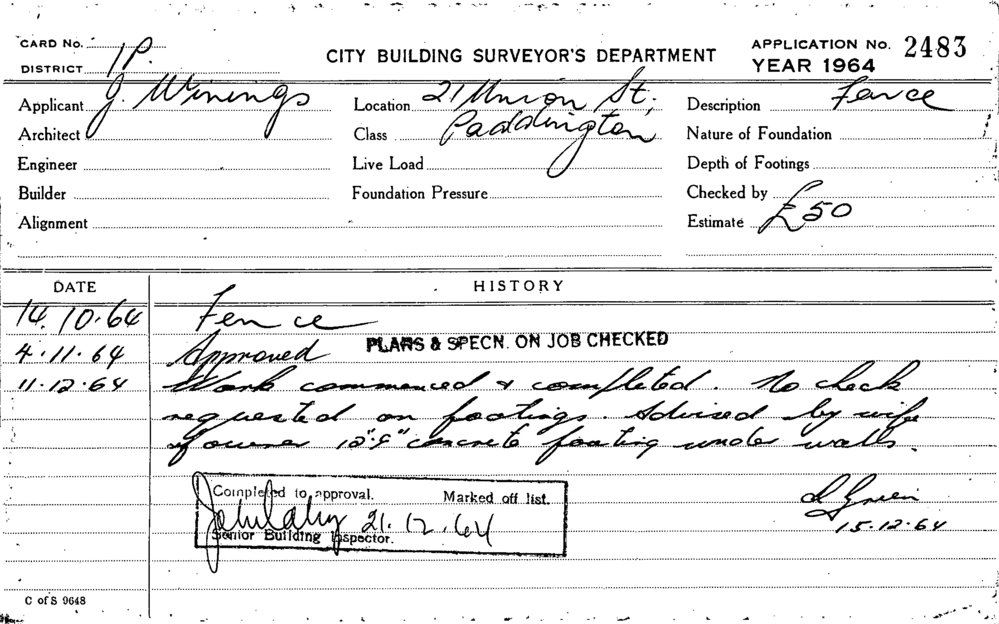 CARD No. 1P.
DISTRICT
CITY BUILDING SURVEYOR'S DEPARTMENT
APPLICATION No. 2483
YEAR 1964
Applicant J. Winings
Location 21 Union St,
Description Fence
Architect
Class Paddington
Nature of Foundation
Engineer
Live Load
Depth of Footings
Builder
Foundation Pressure
Checked by
Alignment
Estimate £50
DATE HISTORY
14.10.64 Fence
4.11.64 Approved PLANS & SPECN. ON JOB CHECKED
11.12.64 Work commenced & completed. No check
requested on footings. Advised by wife
of owner concrete footing under walls.
Completed to approval. Marked off list.
21.12.64
Senior Building Inspector.
15.12.64
C of S 9648